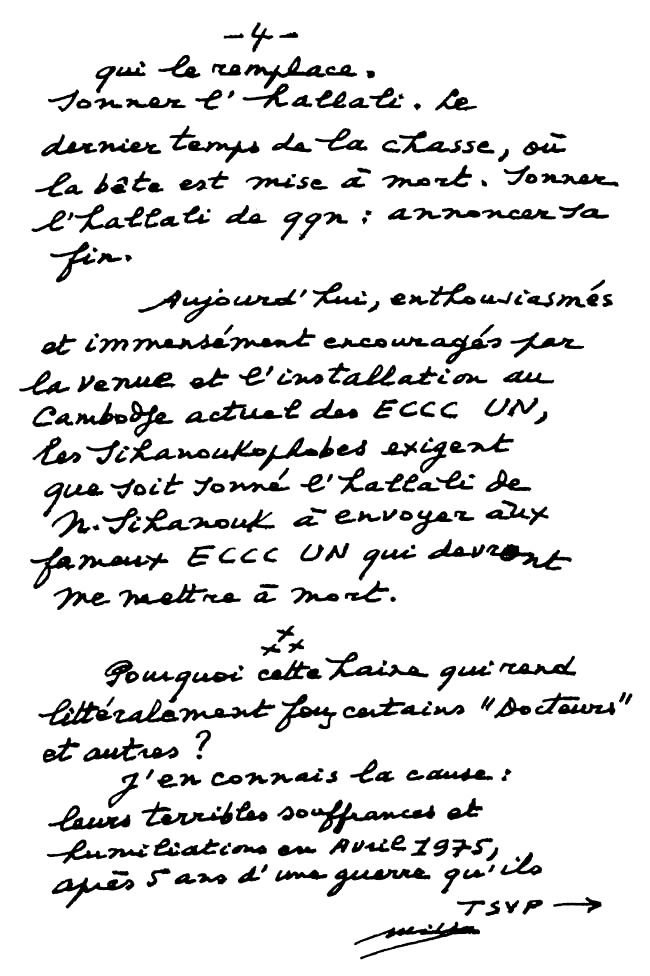 -4-
qui le remplace.
Sonner l'hallali. Le
dernier temps de la chasse, où
la bête est mise à mort. Sonner
l'hallali de qqn : annoncer sa
fin.
Aujourd'hui, enthousiasmés
et immensément encouragés par
la venue et l'installation au
Cambodge actuel des ECCC UN,
les Sihanoukophobes exigent
que soit sonné l'hallali de
N. Sihanouk à envoyer aux
fameux ECCC UN qui devront
me mettre à mort.
x x x
Pourquoi cette haine qui rend
littéralement fous certains "Docteurs"
et autres ?
J'en connais la cause :
leurs terribles souffrances et
humiliations en Avril 1975,
après 5 ans d'une guerre qu'ils
TSVP →